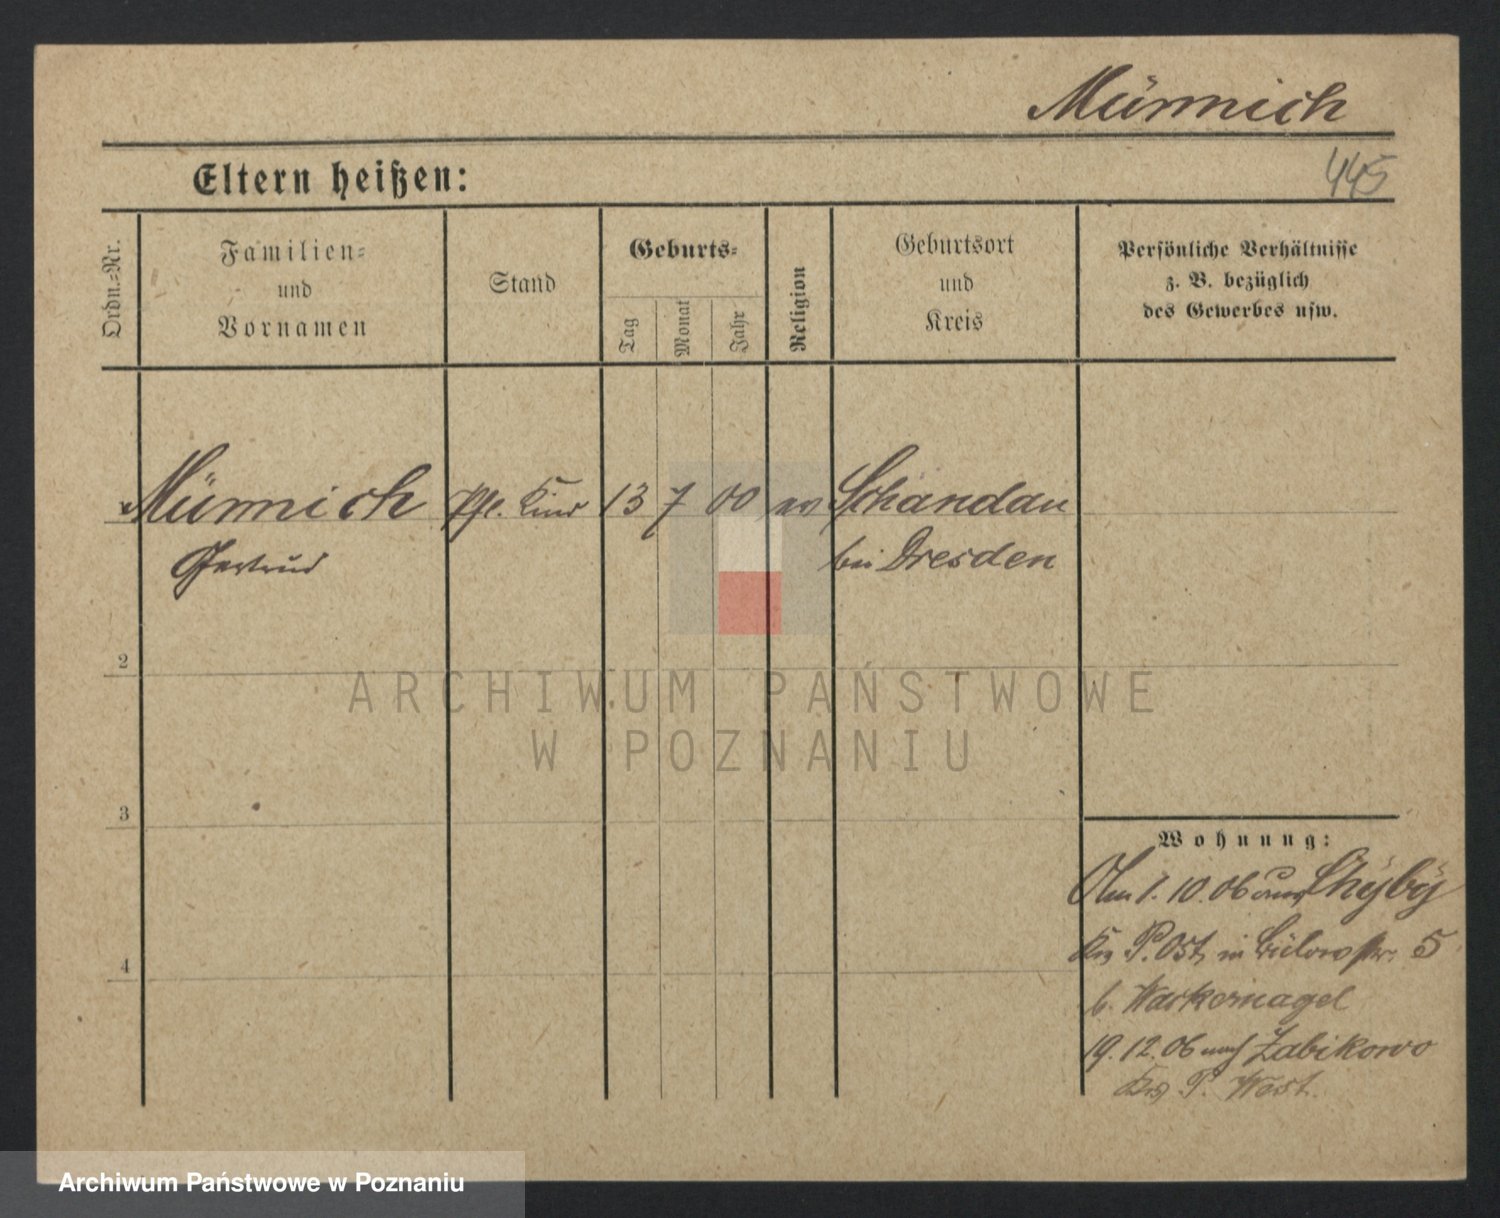 Münnich
445
Eltern heißen:
Ordn.-Nr.
Familien-
und
Vornamen
Stand
Geburts-
Tag
Monat
Jahr
Religion
Geburtsort
und
Kreis
Persönliche Verhältnisse
z. B. bezüglich
des Gewerbes usw.
Münnich Pfl. Kind 13 7 00 ev Schandau
Gertrud bei Dresden
2
3
4
Wohnung:
Am 1.10.06 aus Chyby
Krs P. Ost, in Bülowstr. 5
b. Wackernagel
19.12.06 nach Zabikowo
Krs P. West.
ARCHIWUM PAŃSTWOWE
W POZNANIU
Archiwum Państwowe w Poznaniu